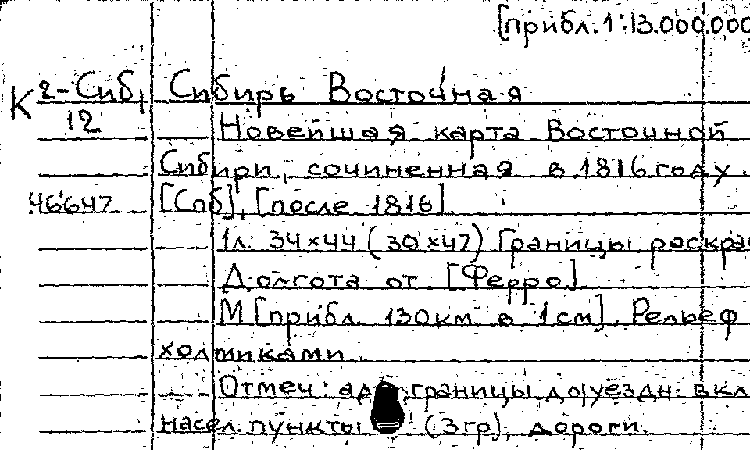 [прибл. 1:13.000.000
К 2-Сиб, Сибирь Восточная
12 Новейшая карта Восточной
Сибири, сочиненная в 1816 году.
46647 [Спб], [после 1816]
1л. 34×44 (30×47) Границы раскра
Долгота от [Ферро]
М [прибл. 130км в 1см]. Рельеф
холмиками.
Отмеч: границы до уездн. вкл
насел. пункты (3гр), дороги.